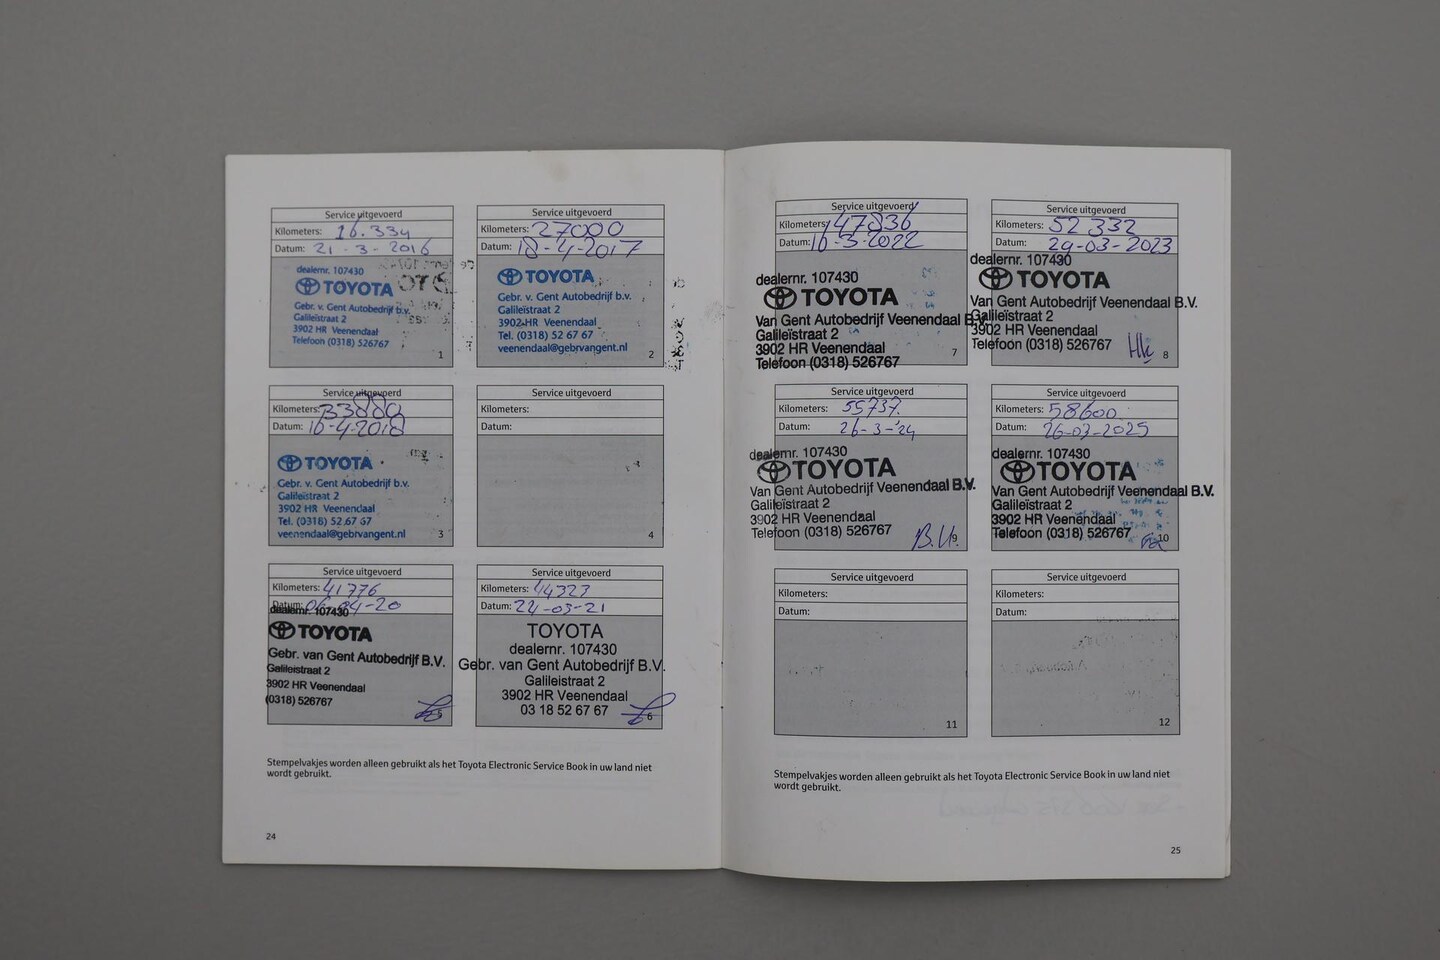 Service uitgevoerd
Kilometers: 16.334
Datum: 21-3-2016
dealernr. 107430
TOYOTA
Gebr. v. Gent Autobedrijf b.v.
Galileïstraat 2
3902 HR Veenendaal
Telefoon (0318) 526767
1
Service uitgevoerd
Kilometers: 27000
Datum: 18-4-2017
TOYOTA
Gebr. v. Gent Autobedrijf b.v.
Galileïstraat 2
3902 HR Veenendaal
Tel. (0318) 52 67 67
veenendaal@gebrvangent.nl
2
Service uitgevoerd
Kilometers: 33880
Datum: 16-4-2018
TOYOTA
Gebr. v. Gent Autobedrijf b.v.
Galileïstraat 2
3902 HR Veenendaal
Tel. (0318) 52 67 67
veenendaal@gebrvangent.nl
3
Service uitgevoerd
Kilometers:
Datum:
4
Service uitgevoerd
Kilometers: 41776
Datum: 06-04-20
dealernr. 107430
TOYOTA
Gebr. van Gent Autobedrijf B.V.
Galileistraat 2
3902 HR Veenendaal
(0318) 526767
5
Service uitgevoerd
Kilometers: 44323
Datum: 24-03-21
TOYOTA
dealernr. 107430
Gebr. van Gent Autobedrijf B.V.
Galileistraat 2
3902 HR Veenendaal
03 18 52 67 67
6
Stempelvakjes worden alleen gebruikt als het Toyota Electronic Service Book in uw land niet
wordt gebruikt.
24
Service uitgevoerd
Kilometers: 47836
Datum: 16-3-2022
dealernr. 107430
TOYOTA
Van Gent Autobedrijf Veenendaal B.V.
Galileïstraat 2
3902 HR Veenendaal
Telefoon (0318) 526767
7
Service uitgevoerd
Kilometers: 52 332
Datum: 29-03-2023
dealernr. 107430
TOYOTA
Van Gent Autobedrijf Veenendaal B.V.
Galileïstraat 2
3902 HR Veenendaal
Telefoon (0318) 526767
8
Service uitgevoerd
Kilometers: 55737.
Datum: 26-3-'24
dealernr. 107430
TOYOTA
Van Gent Autobedrijf Veenendaal B.V.
Galileïstraat 2
3902 HR Veenendaal
Telefoon (0318) 526767
9
Service uitgevoerd
Kilometers: 58600
Datum: 26-03-2025
dealernr. 107430
TOYOTA
Van Gent Autobedrijf Veenendaal B.V.
Galileïstraat 2
3902 HR Veenendaal
Telefoon (0318) 526767
10
Service uitgevoerd
Kilometers:
Datum:
11
Service uitgevoerd
Kilometers:
Datum:
12
Stempelvakjes worden alleen gebruikt als het Toyota Electronic Service Book in uw land niet
wordt gebruikt.
25